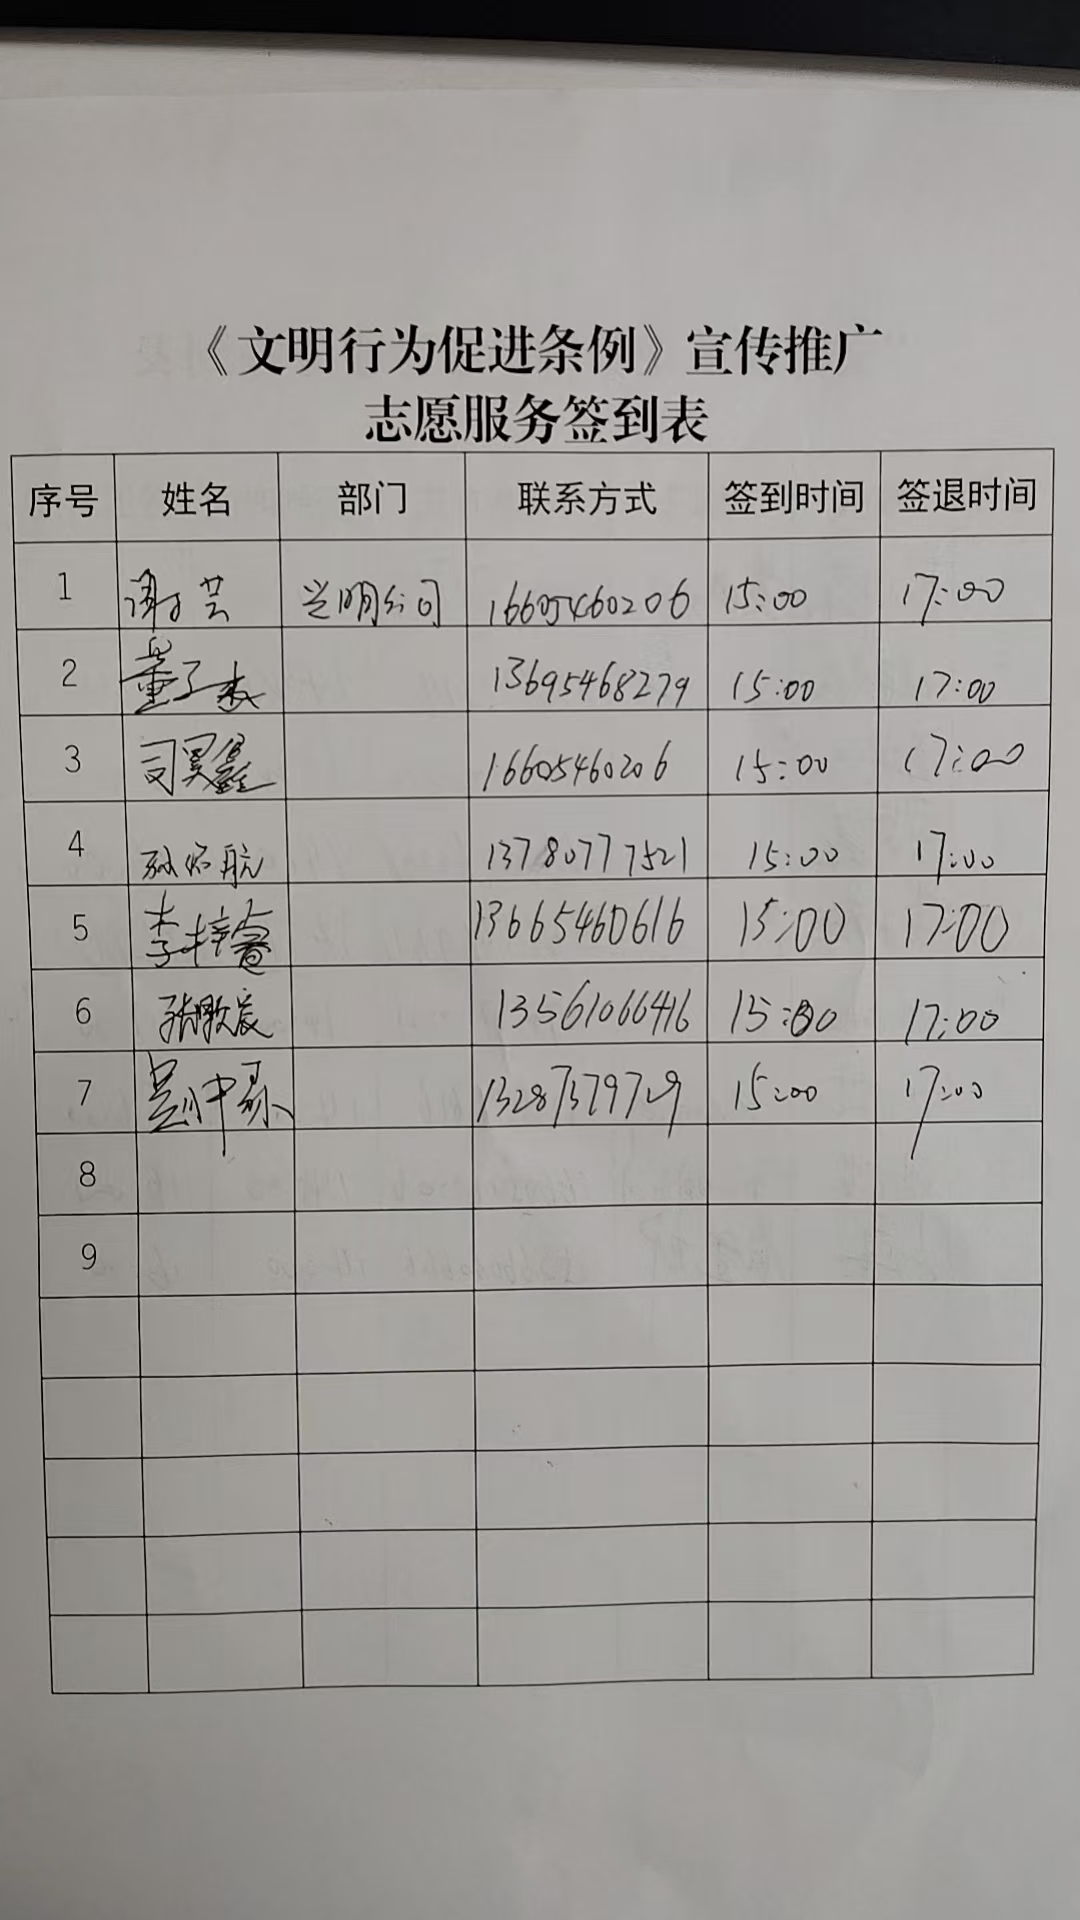 《文明行为促进条例》宣传推广
志愿服务签到表
序号 姓名 部门 联系方式 签到时间 签退时间
1 谢芸 兴明公司 16605460206 15:00 17:00
2 董子 13695468279 15:00 17:00
3 司昊鑫 16605460206 15:00 17:00
4 孙航 13780777521 15:00 17:00
5 李梓睿 13665460616 15:00 17:00
6 张宸 13561066416 15:00 17:00
7 中 13287379729 15:00 17:00
8
9